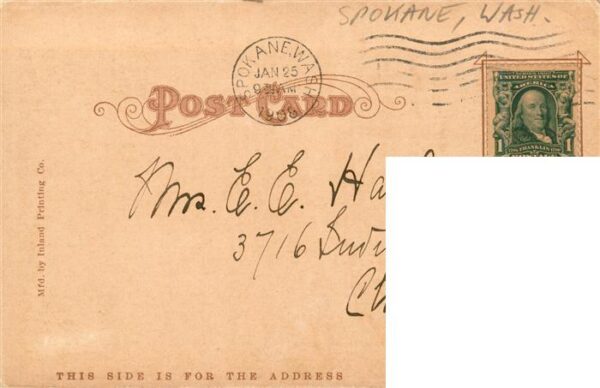 SPOKANE, WASH.
SPOKANE, WASH.
JAN 25
1908
POST CARD
UNITED STATES OF
AMERICA
1 FRANKLIN 1
Mrs. E. E.
3716
Mfd. by Inland Printing Co.
THIS SIDE IS FOR THE ADDRESS